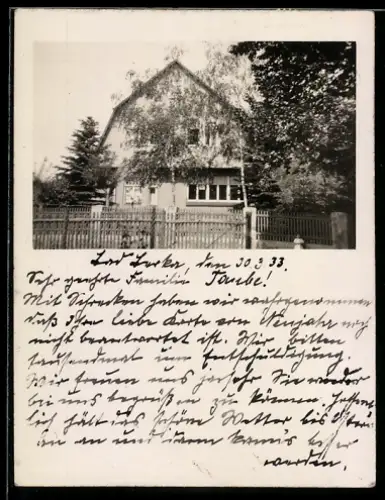 Bad Berka, den 30.3.33.
Sehr geehrte Familie Taube!
Mit Schrecken haben wir wahrgenommen
daß Ihre liebe Karte von Neujahr noch
nicht beantwortet ist. Wir bitten
tausendmal um Entschuldigung.
Wir freuen uns sehr Sie wieder
bei uns begrüßen zu können. Hoffent-
lich hält das schöne Wetter bis Oster
an und dann kann's
werden.